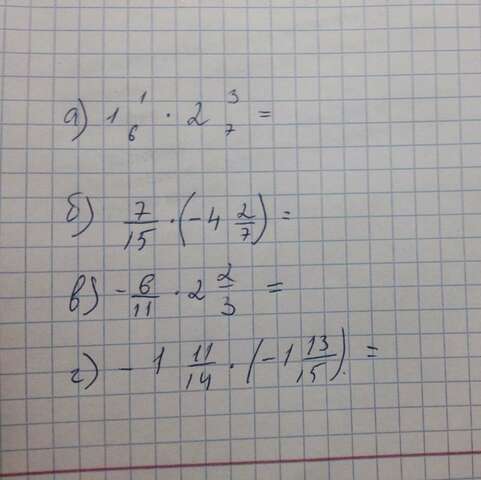 а) 1 1/6 · 2 3/7 =
б) 7/15 · (-4 2/7) =
в) -6/11 · 2 2/3 =
г) -1 11/14 · (-1 13/15) =